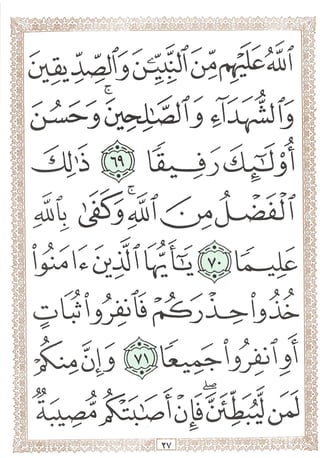 ٱللَّهُ عَلَيْهِم مِّنَ ٱلنَّبِيِّـۧنَ وَٱلصِّدِّيقِينَ
وَٱلشُّهَدَآءِ وَٱلصَّـٰلِحِينَ ۚ وَحَسُنَ
أُو۟لَـٰٓئِكَ رَفِيقًا ٦٩ ذَٰلِكَ
ٱلْفَضْلُ مِنَ ٱللَّهِ ۚ وَكَفَىٰ بِٱللَّهِ
عَلِيمًا ٧٠ يَـٰٓأَيُّهَا ٱلَّذِينَ ءَامَنُوا۟
خُذُوا۟ حِذْرَكُمْ فَٱنفِرُوا۟ ثُبَاتٍ
أَوِ ٱنفِرُوا۟ جَمِيعًا ٧١ وَإِنَّ مِنكُمْ
لَمَن لَّيُبَطِّئَنَّ ۖ فَإِنْ أَصَـٰبَتْكُم مُّصِيبَةٌ
٢٧